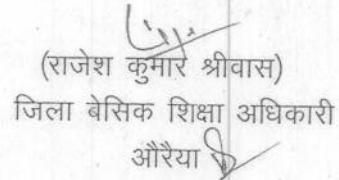 (राजेश कुमार श्रीवास)
जिला बेसिक शिक्षा अधिकारी
औरैया